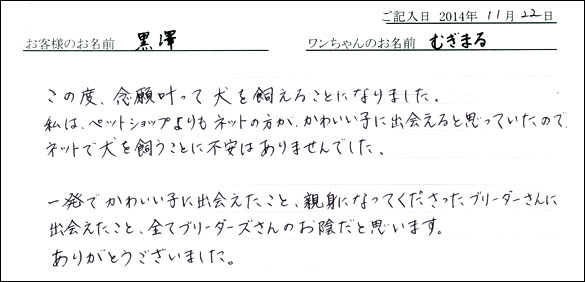 ご記入日 2014年 11月 22日
お客様のお名前 黒澤 ワンちゃんのお名前 むぎまる
この度、念願叶って犬を飼えることになりました。
私は、ペットショップよりもネットの方が、かわいい子に出会えると思っていたので、
ネットで犬を飼うことに不安はありませんでした、
一発でかわいい子に出会えたこと、親身になってくださったブリーダーさんに
出会えたこと、全てブリーダーズさんのお陰だと思います。
ありがとうございました。